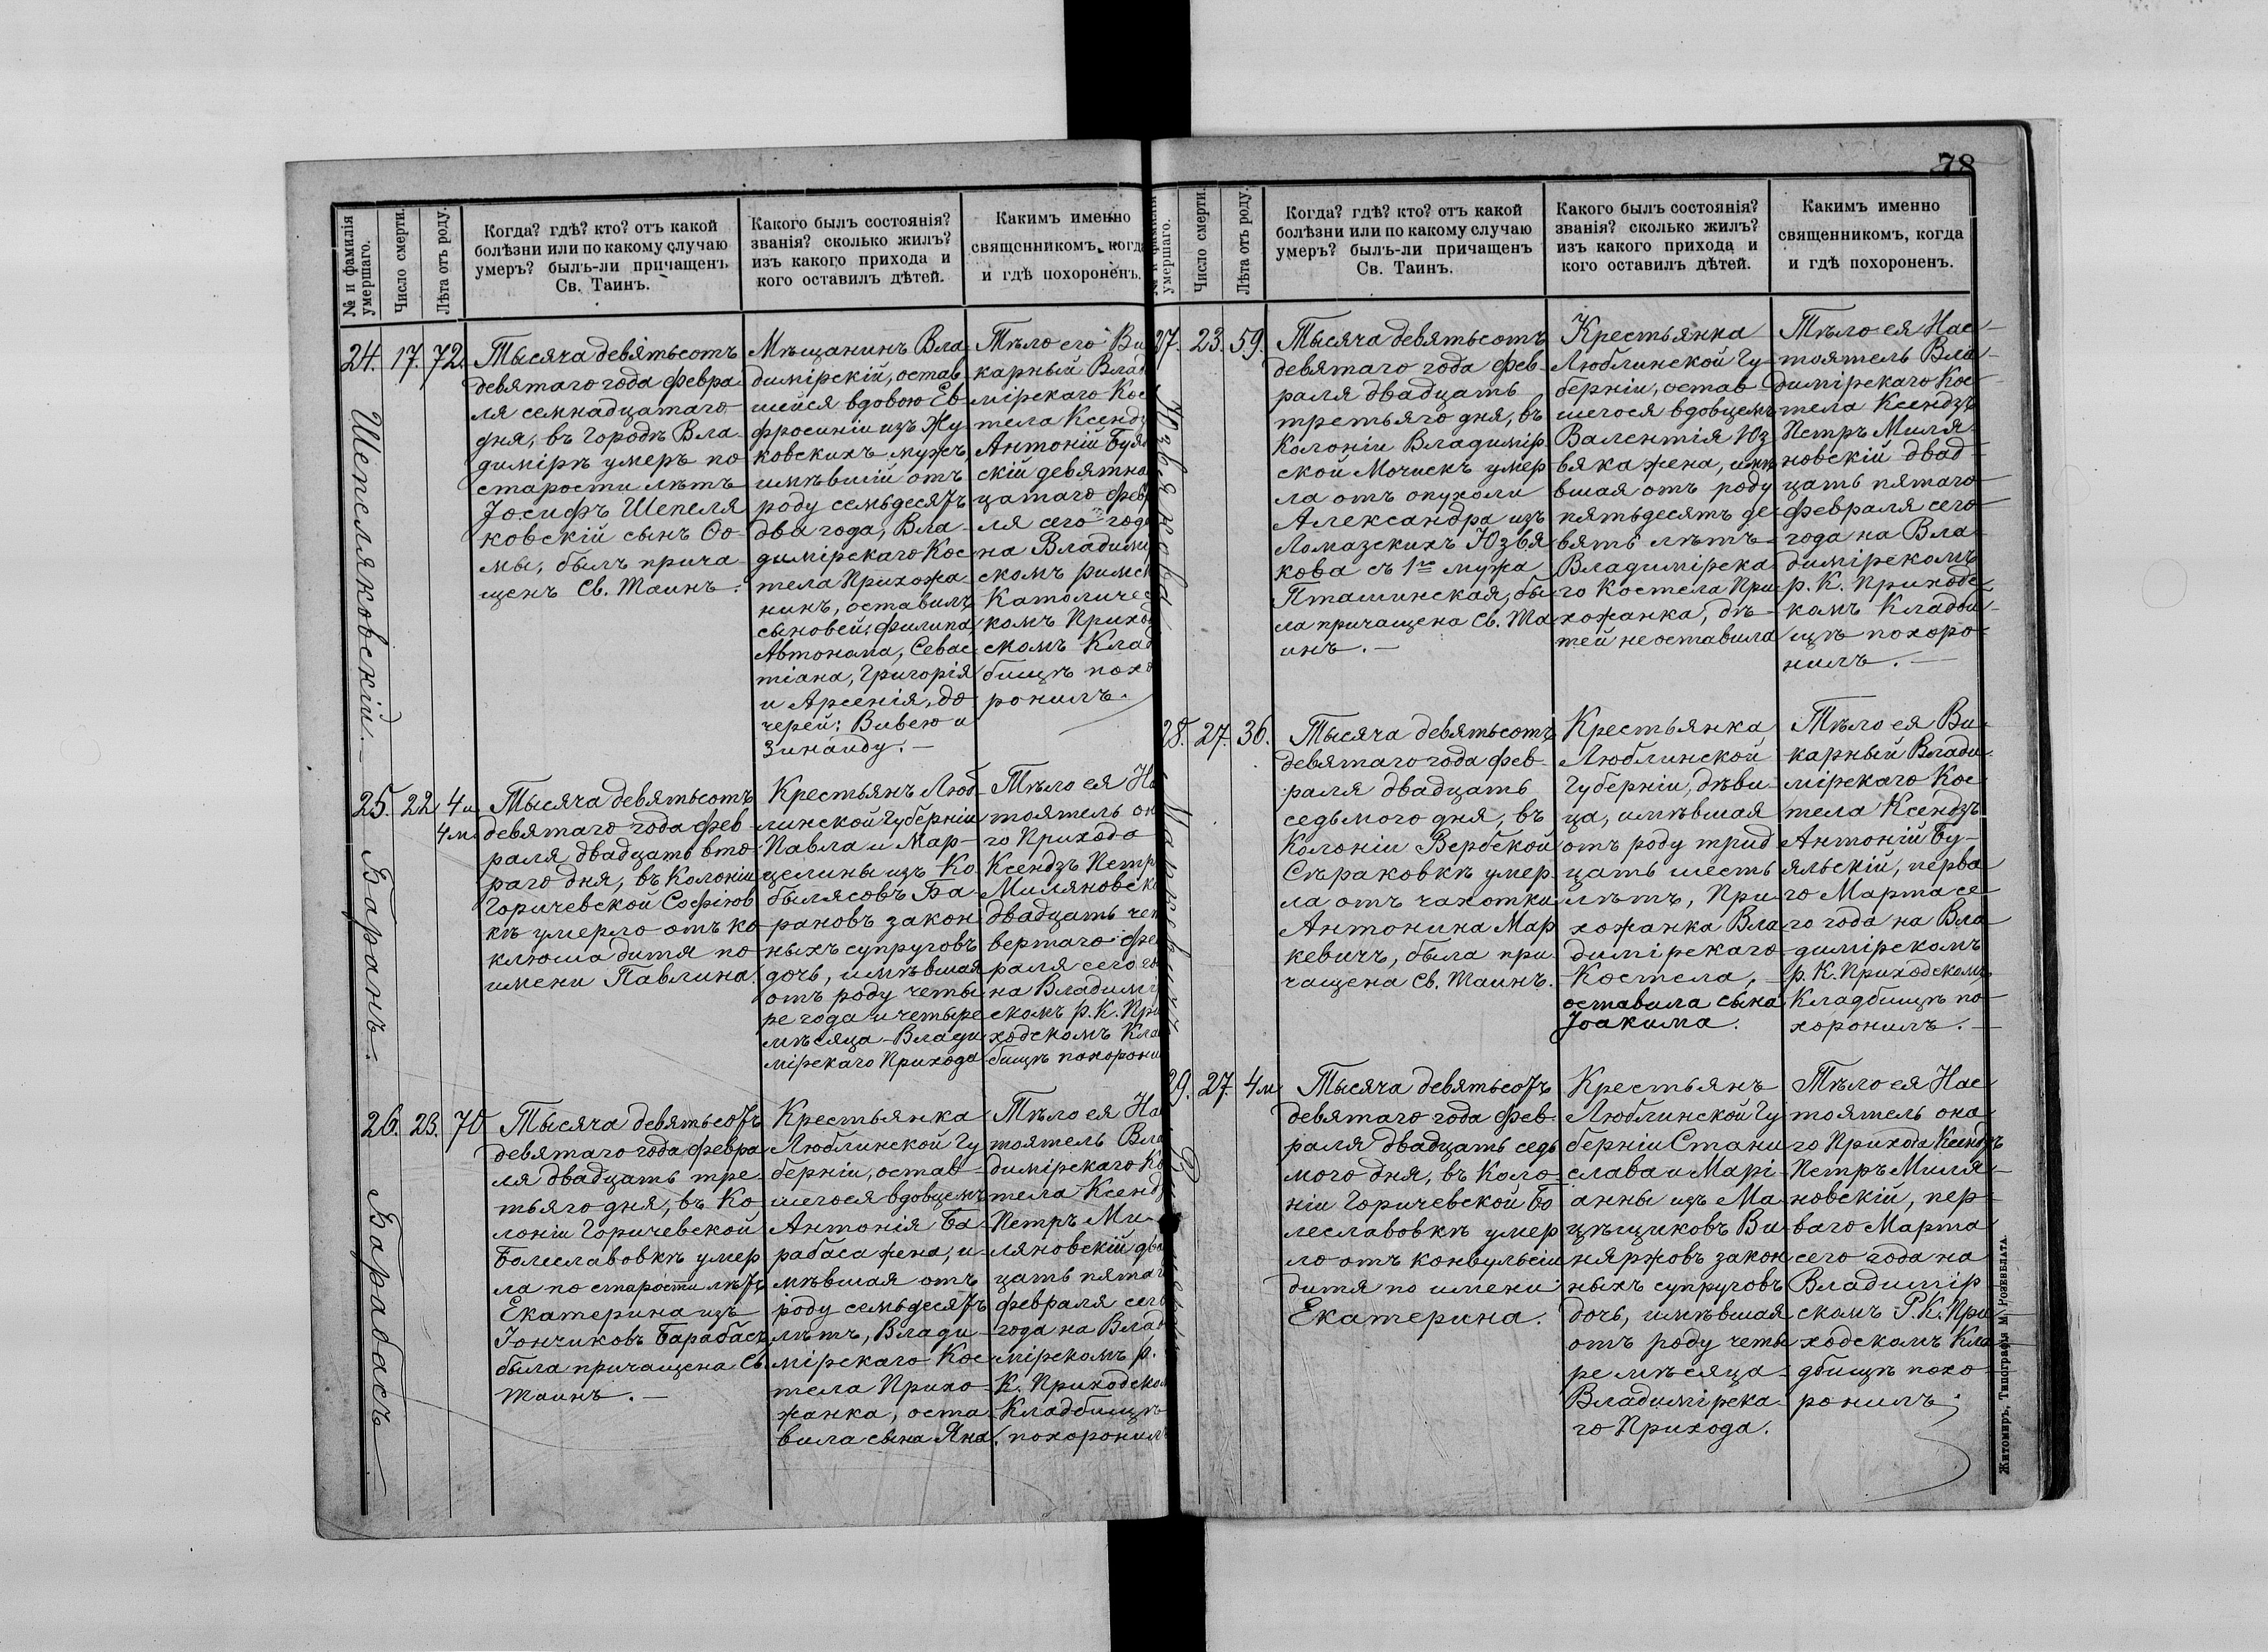 78
№ и фамилія
умершаго.
Число смерти.
Лѣта отъ роду.
Когда? гдѣ? кто? отъ какой
болѣзни или по какому случаю
умеръ? былъ-ли причащенъ
Св. Таинъ.
Какого былъ состоянія?
званія? сколько жилъ?
изъ какого прихода и
кого оставилъ дѣтей.
Какимъ именно
священникомъ, когда
и гдѣ похороненъ.
24.
Шепеляковскій.
17.
72.
Тысяча девятьсотъ
девятаго года февра
ля семнадцатаго
дня, въ городѣ Вла
димірѣ умеръ по
старости лѣтъ
Іосифъ Шепеля
ковскій сынъ Ѳо
мы, былъ прича
щенъ Св. Таинъ.
Мѣщанинъ Вла
димірскій, остав
шейся вдовою Ев
фросиніи изъ Жу
ковскихъ мужъ,
имѣвшій отъ
роду семьдесятъ
два года, Вла-
димірскаго Кос
тела Прихожа
нинъ, оставилъ
сыновей: Филипа,
Автонома, Севас
тіана, Григорія
и Арсенія, до
черей: Вивею и
Зинаиду. —
Тѣло его Ви
карный Влад
мірскаго Кос
тела Ксендз
Антоній Буял
скій девятна
цатаго февр
ля сего года
на Владимі
скомъ римск
Католичес
комъ Приход
скомъ Клад
бищѣ похо
ронилъ.
25.
Баранъ.
22
4 и
4 м
Тысяча девятьсотъ
девятаго года фев-
раля двадцать вто
раго дня, въ Колоніи
Горичевской Софіюв
кѣ умерло отъ ко
клюша дитя по
имени Павлина.
Крестьянъ Люб
линской Губерніи
Павла и Мар-
целины изъ Ко
былясовъ Ба-
рановъ закон
ныхъ супруговъ
дочь, имѣвшая
отъ роду четы
ре года и четыре
мѣсяца - Влади
мірскаго Прихода
Тѣло ея На
тоятель он
го Прихода
Ксендзъ Петр
Миляновск
двадцать чет
вертаго фе
раля сего го
на Владимі
скомъ р. К. При
ходскомъ Кла
бищѣ похорони
26.
Барабасъ
23.
70
Тысяча девятьсотъ
девятаго года февра
ля двадцать тре
тьяго дня, въ Ко
лоніи Горичевской
Болеславовкѣ умер
ла по старости лѣтъ
Екатерина изъ
Іончиковъ Барабасъ,
была причащена Св.
Таинъ. —
Крестьянка
Люблинской Гу
берніи, остав-
шегося вдовцемъ
Антонія Ба-
рабаса жена, и-
мѣвшая отъ
роду семьдесятъ
лѣтъ, Влади-
мірскаго Кос
тела Прихо-
жанка, оста-
вила сына Яна.
Тѣло ея На
тоятель Вла
димірскаго Ко
тела Ксенд
Петръ Ми-
ляновскій два
цать пятаг
февраля сего
года на Влад
мірскомъ р.
К. Приходском
Кладбищѣ
похоронилъ
умершаго.
Число смерти.
Лѣта отъ роду.
Когда? гдѣ? кто? отъ какой
болѣзни или по какому случаю
умеръ? былъ-ли причащенъ
Св. Таинъ.
Какого былъ состоянія?
званія? сколько жилъ?
изъ какого прихода и
кого оставилъ дѣтей.
Какимъ именно
священникомъ, когда
и гдѣ похороненъ.
27.
Юзвякова
23.
59.
Тысяча девятьсотъ
девятаго года фев-
раля двадцать
третьяго дня, въ
Колоніи Владимір
ской Мочискъ умер
ла отъ опухоли
Александра изъ
Ломазскихъ Юзвя
кова съ 1го мужа
Пташинская, бы
ла причащена Св. Та
инъ. —
Крестьянка
Люблинской Гу-
берніи, остав-
шегося вдовцемъ
Валентія Юз
вяка жена, имѣ
вшая отъ роду
пятьдесятъ де
вять лѣтъ-
Владимірска
го Костела При
хожанка, дѣ-
тей не оставила
Тѣло ея Нас-
тоятель Вла-
димірскаго Кос
тела Ксендзъ
Петръ Миля-
новскій двад-
цать пятаго
февраля сего
года на Вла-
димірскомъ
р. К. Приходс
комъ Кладби-
щѣ похоро-
нилъ. —
28.
Маркевичъ
27.
36.
Тысяча девятьсотъ
девятаго года фев-
раля двадцать
седьмого дня, въ
Колоніи Вербской
Сѣраковкѣ умер
ла отъ чахотки
Антонина Мар
кевичъ, была при
чащена Св. Таинъ.
Крестьянка
Люблинской
Губерніи, дѣви-
ца, имѣвшая
отъ роду трид
цать шесть
лѣтъ, При
хожанка Вла
димірскаго
Костела, -
оставила сына
Іоакима.
Тѣло ея Ви-
карный Влади-
мірскаго Кос
тела Ксендзъ
Антоній Бу-
яльскій, перва
го Марта се
го года на Вла
димірскомъ
р. К. Приходскомъ
Кладбищѣ по-
хоронилъ. —
29.
27.
4 м
Тысяча девятьсотъ
девятаго года фев-
раля двадцать седь
мого дня, въ Коло-
ніи Горичевской Бо
леславовкѣ умер
ло отъ конвульсіи
дитя по имени
Екатерина.
Крестьянъ
Люблинской Гу
берніи Стани
слава и Марі-
анны изъ Ма
цѣщиковъ Ви
няржовъ закон
ныхъ супруговъ
дочь, имѣвшая
отъ роду четы
ре мѣсяца -
Владимірска
го Прихода.
Тѣло ея Нас
тоятель она
го Прихода Ксендзъ
Петръ Миля-
новскій, пер-
ваго Марта
сего года на
Владимір
скомъ Р. К. При
ходскомъ Кла
дбищѣ похо-
ронилъ;
Житомиръ, Типографія М. Розенблата.